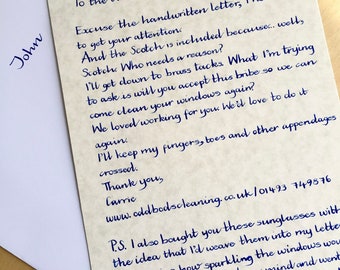 John
Excuse the handwritten letter, I
to get your attention.
And the Scotch is included because.. well,
Scotch. Who needs a reason?
I'll get down to brass tacks. What I'm trying
to ask is will you accept this bribe so we can
come clean your windows again?
We loved working for you. We'd love to do it
again.
I'll keep my fingers, toes and other appendages
crossed.
Thank you,
Carrie
www.oddbodscleaning.co.uk/01493 749576
P.S. I also bought you these sunglasses with
the idea that I'd weave them into my letter
how sparkling the windows wou
mind and went